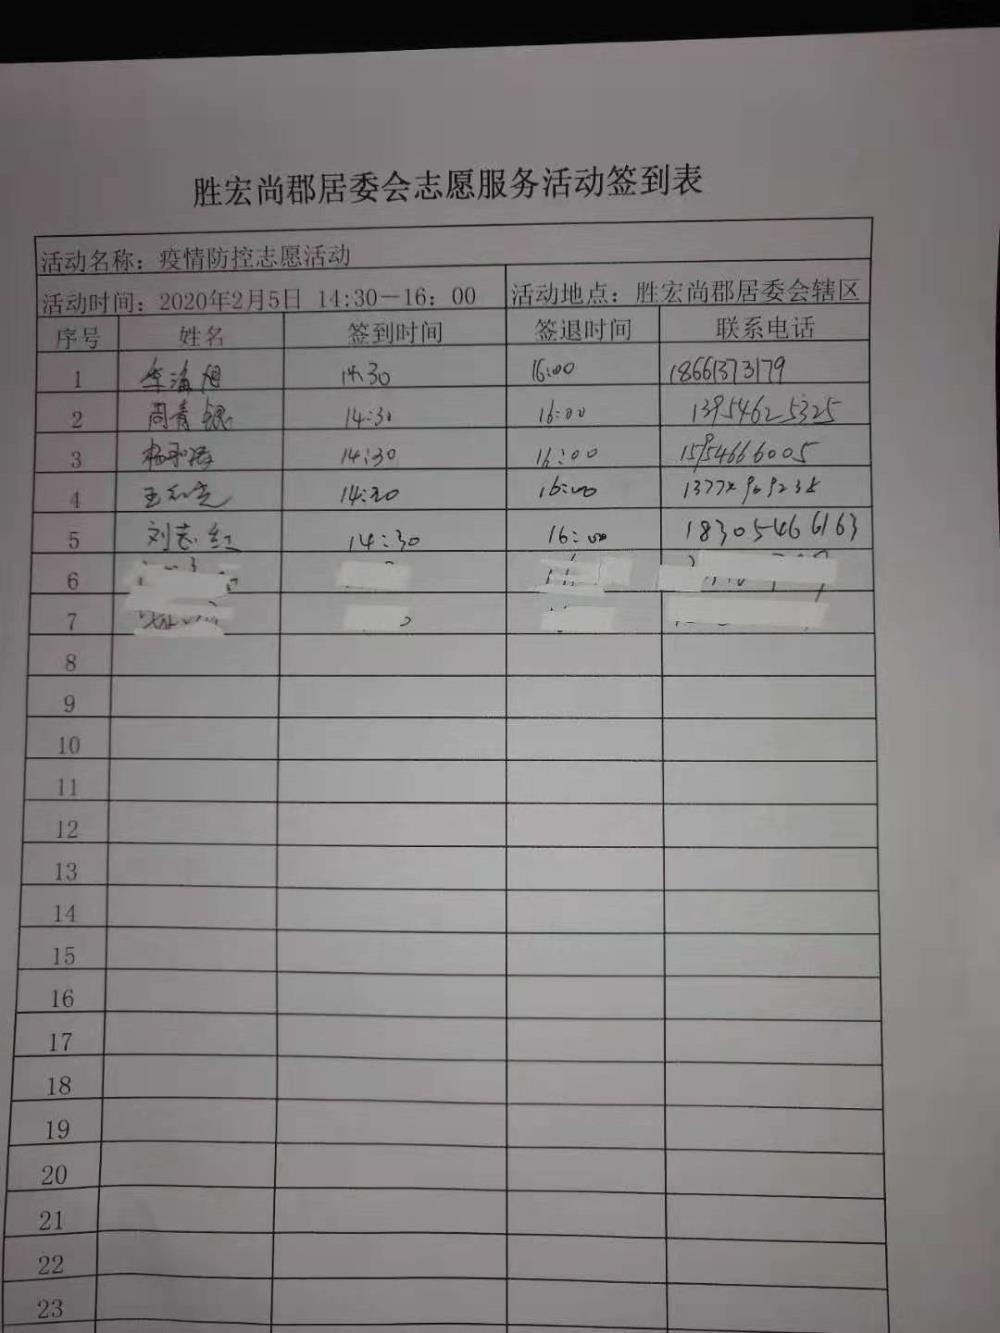 胜宏尚郡居委会志愿服务活动签到表
活动名称：疫情防控志愿活动
活动时间：2020年2月5日 14:30－16：00 活动地点：胜宏尚郡居委会辖区
序号 姓名 签到时间 签退时间 联系电话
1 14:30 16:00 18661373179
2 周青银 14:30 16:00 13954625325
3 14:30 16:00 15954666005
4 14:30 16:00
5 刘志红 14:30 16:00 18305466163
6
7
8
9
10
11
12
13
14
15
16
17
18
19
20
21
22
23